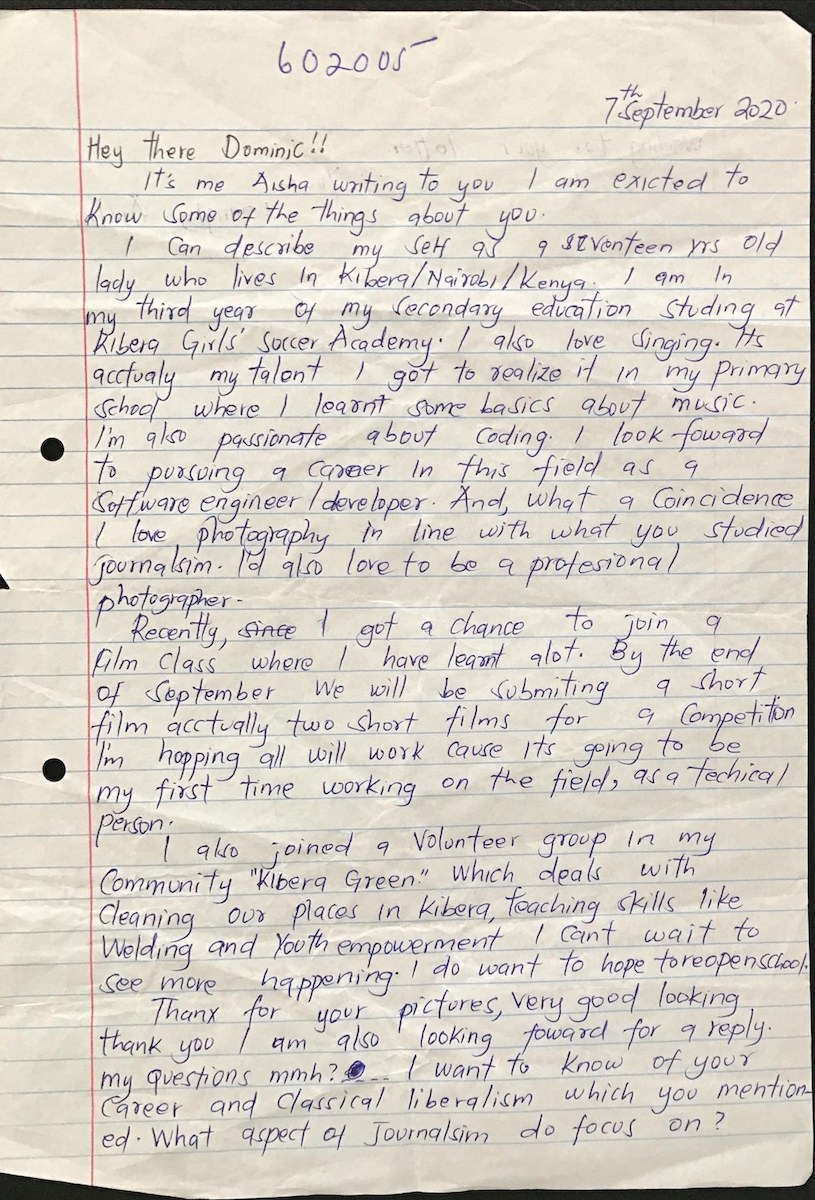 602005
7th September 2020.
Hey there Dominic!!
It's me Aisha writing to you I am exicted to
Know some of the things about you.
I Can describe my self as a seventeen yrs old
lady who lives in Kibera/Nairobi/Kenya. I am In
my third year of my Secondary education studing at
Kibera Girls' Soccer Academy. I also love singing. Its
acctualy my talent I got to realize it in my primary
school where I learnt some basics about music.
I'm also passionate about Coding. I look foward
to pursuing a career in this field as a
Software engineer/developer. And, what a Coincidence
I love photography in line with what you studied
journalsim. I'd also love to be a profesional
photographer.
Recently, since I got a chance to join a
Film Class where I have learnt alot. By the end
of September We will be submiting a short
film acctually two short films for a Competition
I'm hopping all will work cause its going to be
my first time working on the field, as a techical
person.
I also joined a Volunteer group in my
Community "Kibera Green." Which deals with
Cleaning our places in Kibera, teaching skills like
Welding and Youth empowerment I cant wait to
see more happening. I do want to hope to reopen school.
Thanx for your pictures, very good looking
thank you I am also looking foward for a reply.
my questions mmh? ... I want to know of your
Career and Classical liberalism which you mention-
ed. What aspect of Journalsim do focus on?